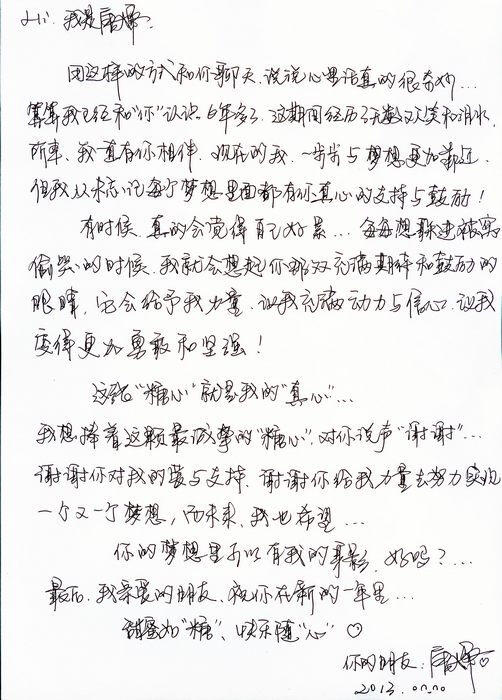 Hi. 我是唐嫣.
用这样的方式和你聊天，说说心里话真的很奇妙...
算算我已经和“你”认识6年多了，这期间经历了无数欢笑和泪水，
所幸，我一直有你相伴。现在的我，一步步与梦想更加靠近，
但我从未忘记每个梦想里面都有你真心的支持与鼓励！
有时候，真的会觉得自己好累... 每每想躲进被窝
偷哭的时候，我就会想起你那双充满期待和鼓励的
眼睛，它会给予我力量，让我充满动力与信心，让我
变得更加勇敢和坚强！
这张“糖心”就是我的“真心”...
我想捧着这颗最诚挚的“糖心”，对你说声“谢谢”...
谢谢你对我的爱与支持，谢谢你给我力量去努力实现
一个又一个梦想，而未来，我也希望...
你的梦想里可以有我的身影，好吗？...
最后，我亲爱的朋友，祝你在新的一年里...
甜蜜如“糖”、快乐随“心”
你的朋友：唐嫣
2013.